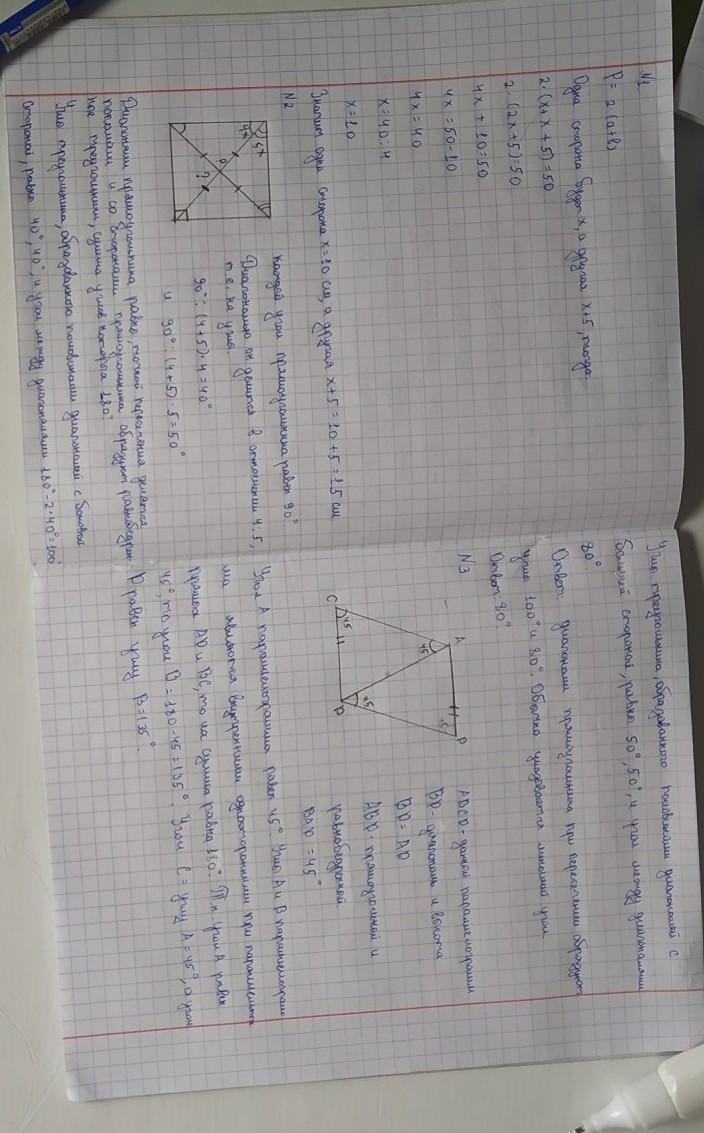 №1.
P = 2·(a+b)
Одна сторона будет x, а другая x+5, тогда:
2·(x+x+5)=50
2·(2x+5)=50
4x+10=50
4x=50-10
4x=40
x=40:4
x=10
Значит одна сторона x=10 см, а другая x+5=10+5=15 см
№2
4x
5x
?
Каждый угол прямоугольника равен 90°
Диагональю он делится в отношении 4:5,
т.е. на углы.
90°:(4+5)·4=40°
и 90°:(4+5)·5=50°
Диагонали прямоугольника равны, точкой пересечения делятся
пополам и со сторонами прямоугольника образуют равнобедрен-
ные треугольники, сумма углов которых 180°
Углы треугольника, образованного половинами диагоналей с боковой
стороной, равны 40°, 40°, и угол между диагоналями 180°-2·40°=100°
Углы треугольника, образованного половинами диагоналей с
большей стороной, равны 50°, 50°, и угол между диагоналями
80°
Ответ: диагонали прямоугольника при пересечении образуют
углы 100° и 80°. Обычно указывается меньший угол
Ответ: 80°
№3
A
B
C
D
45
45
45
45
ABCD - данный параллелограмм
BD - диагональ и высота
BD = AD
ABD - прямоугольный и
равнобедренный
BAD = 45°
Угол A параллелограмма равен 45°. Углы A и B параллелограм
ма являются внутренними односторонними при параллельных
прямых AD и BC, то их сумма равна 180°. Т.к угол A равен
45°, то угол B = 180-45=135°. Угол C = углу A = 45°, а угол
D равен углу B=135°.